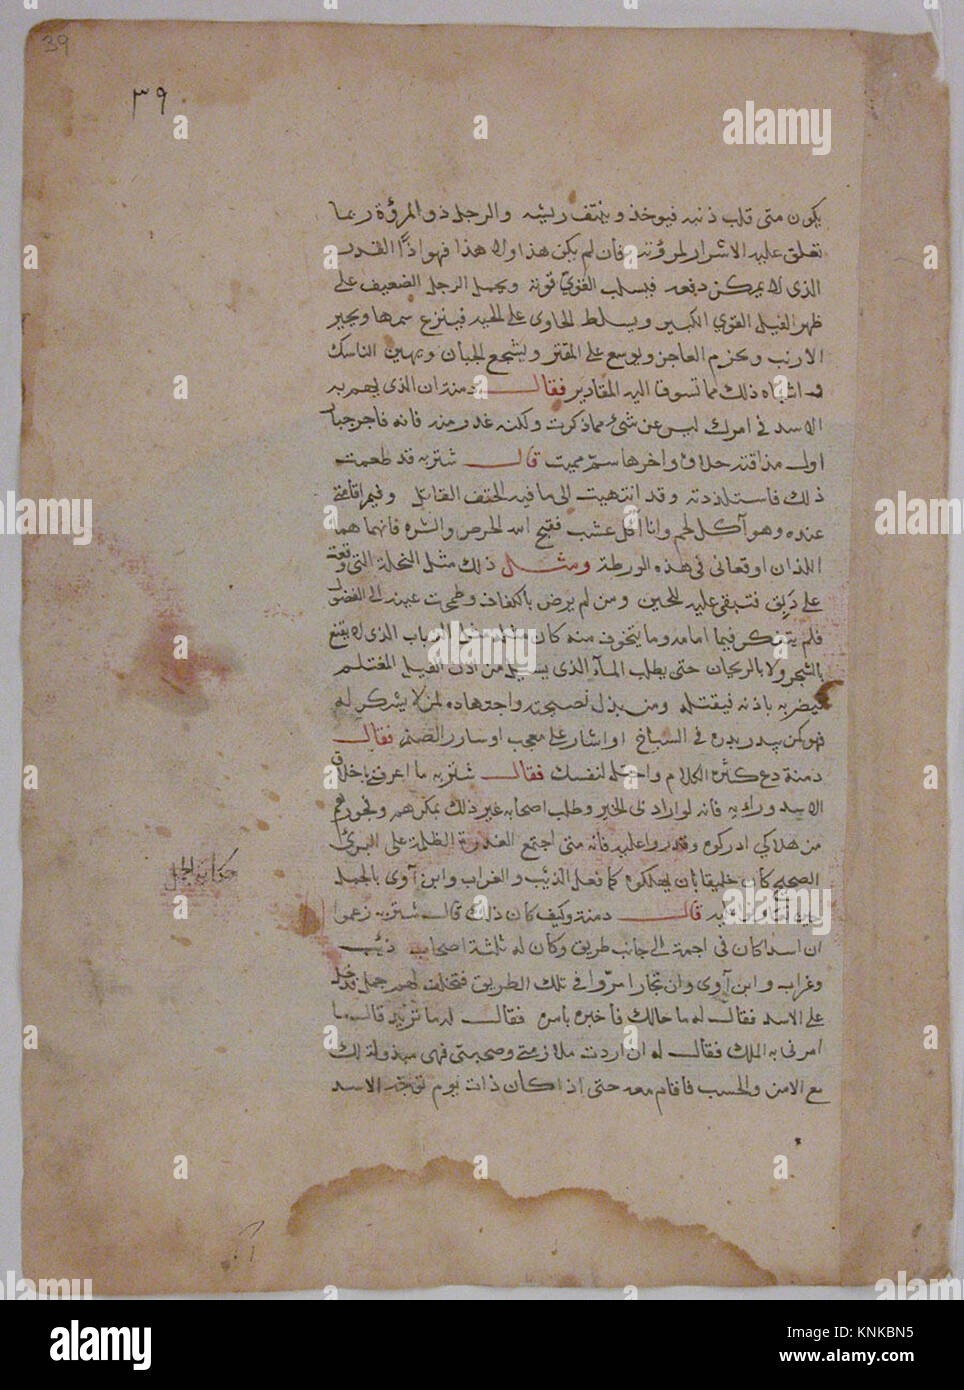 39
٣٩
يكون متى قلب ذنبه فيوخذ وينتف ريشه والرجل ذو المروة ربما
تعلق عليه الاشرار لمروته فان لم يكن هذا ولا هذا فهو اذًا القدر
الذى لا يمكن دفعه فيسلب القوىّ قوته ويحمل الرجل الضعيف على
ظهر الفيل القوي الكبير ويسلط الحاوى على الحيه فينزع سمها ويجير
الارنب ويحزم العاجز ويوسع على المقتر ويشجع الجبان ويهين الناسك
واشباه ذلك مما تسوقا اليه المقادير فقال دمنة ان الذى يهم به
الاسد في امرك ليس عن شىء مما ذكرت ولكنه غدر منه فانه فاجر جبار
اول مذاقته حلاوة واخرها سمّ مميت قال شتربه قد طعمت
ذلك فاستلذذته وقد انتهيت الى ما فيه الحتف القاتل وفيم اقامتى
عنده وهو آكل لحم وانا آكل عشب فقبح الله الحرص والشره فانهما هما
اللذان اوقعانى فى هذه الورطة ومثل ذلك مثل النحلة التى وقعت
على دَبِق فتبقى عليه للحين ومن لم يرض بالكفاف وطمحت عينه الى الفضول
فلم يتفكر فيما امامه وما يتخوف منه كان مثله مثل الذباب الذى لا يقنع
بالشجر ولا بالريحان حتى يطلب المآء الذى يسيل من اذن الفيل المغتلم
فيضربه باذنه فيقتله ومن بذل نصيحته واجتهاده لمن لا يشكر له
فهو كمن يبذر بذره في السباخ او اشار على معجب او سارر الاصم فقال
دمنة دع كثرة الكلام واحتل لنفسك فقال شتربه ما اعرفنى باخلاق
الاسد وراءيه فانه لو اراد بى الخير وطلب اصحابه غير ذلك بمكرهم وفجورهم
من هلاكي ادركوه وقدروا عليه فانه متى اجتمع الغدرة الظلمة على البرئ
الصحيح كان خليقا بان يهلكوه كما فعل الذيب والغراب وابن آوى بالجمل
حين قال دمنة وكيف كان ذلك قال شتربه زعموا
ان اسدا كان فى اجمة الى جانب طريق وكان له ثلثة اصحاب ذئب
وغراب وابن آوى وان تجارا مرّوا في تلك الطريق فتخلف لهم جمل فدخل
على الاسد فقال له ما حالك فاخبره بامره فقال له ما تريد قال ما
امرنى به الملك فقال له ان اردت ملازمتى وصحبتى فهى مبذولة لك
مع الامن والخصب فاقام معه حتى اذا كان ذات يوم توجه الاسد
حكاية الجمل
alamy
alamy
alamy
alamy
alamy
KNKBN5
www.alamy.com